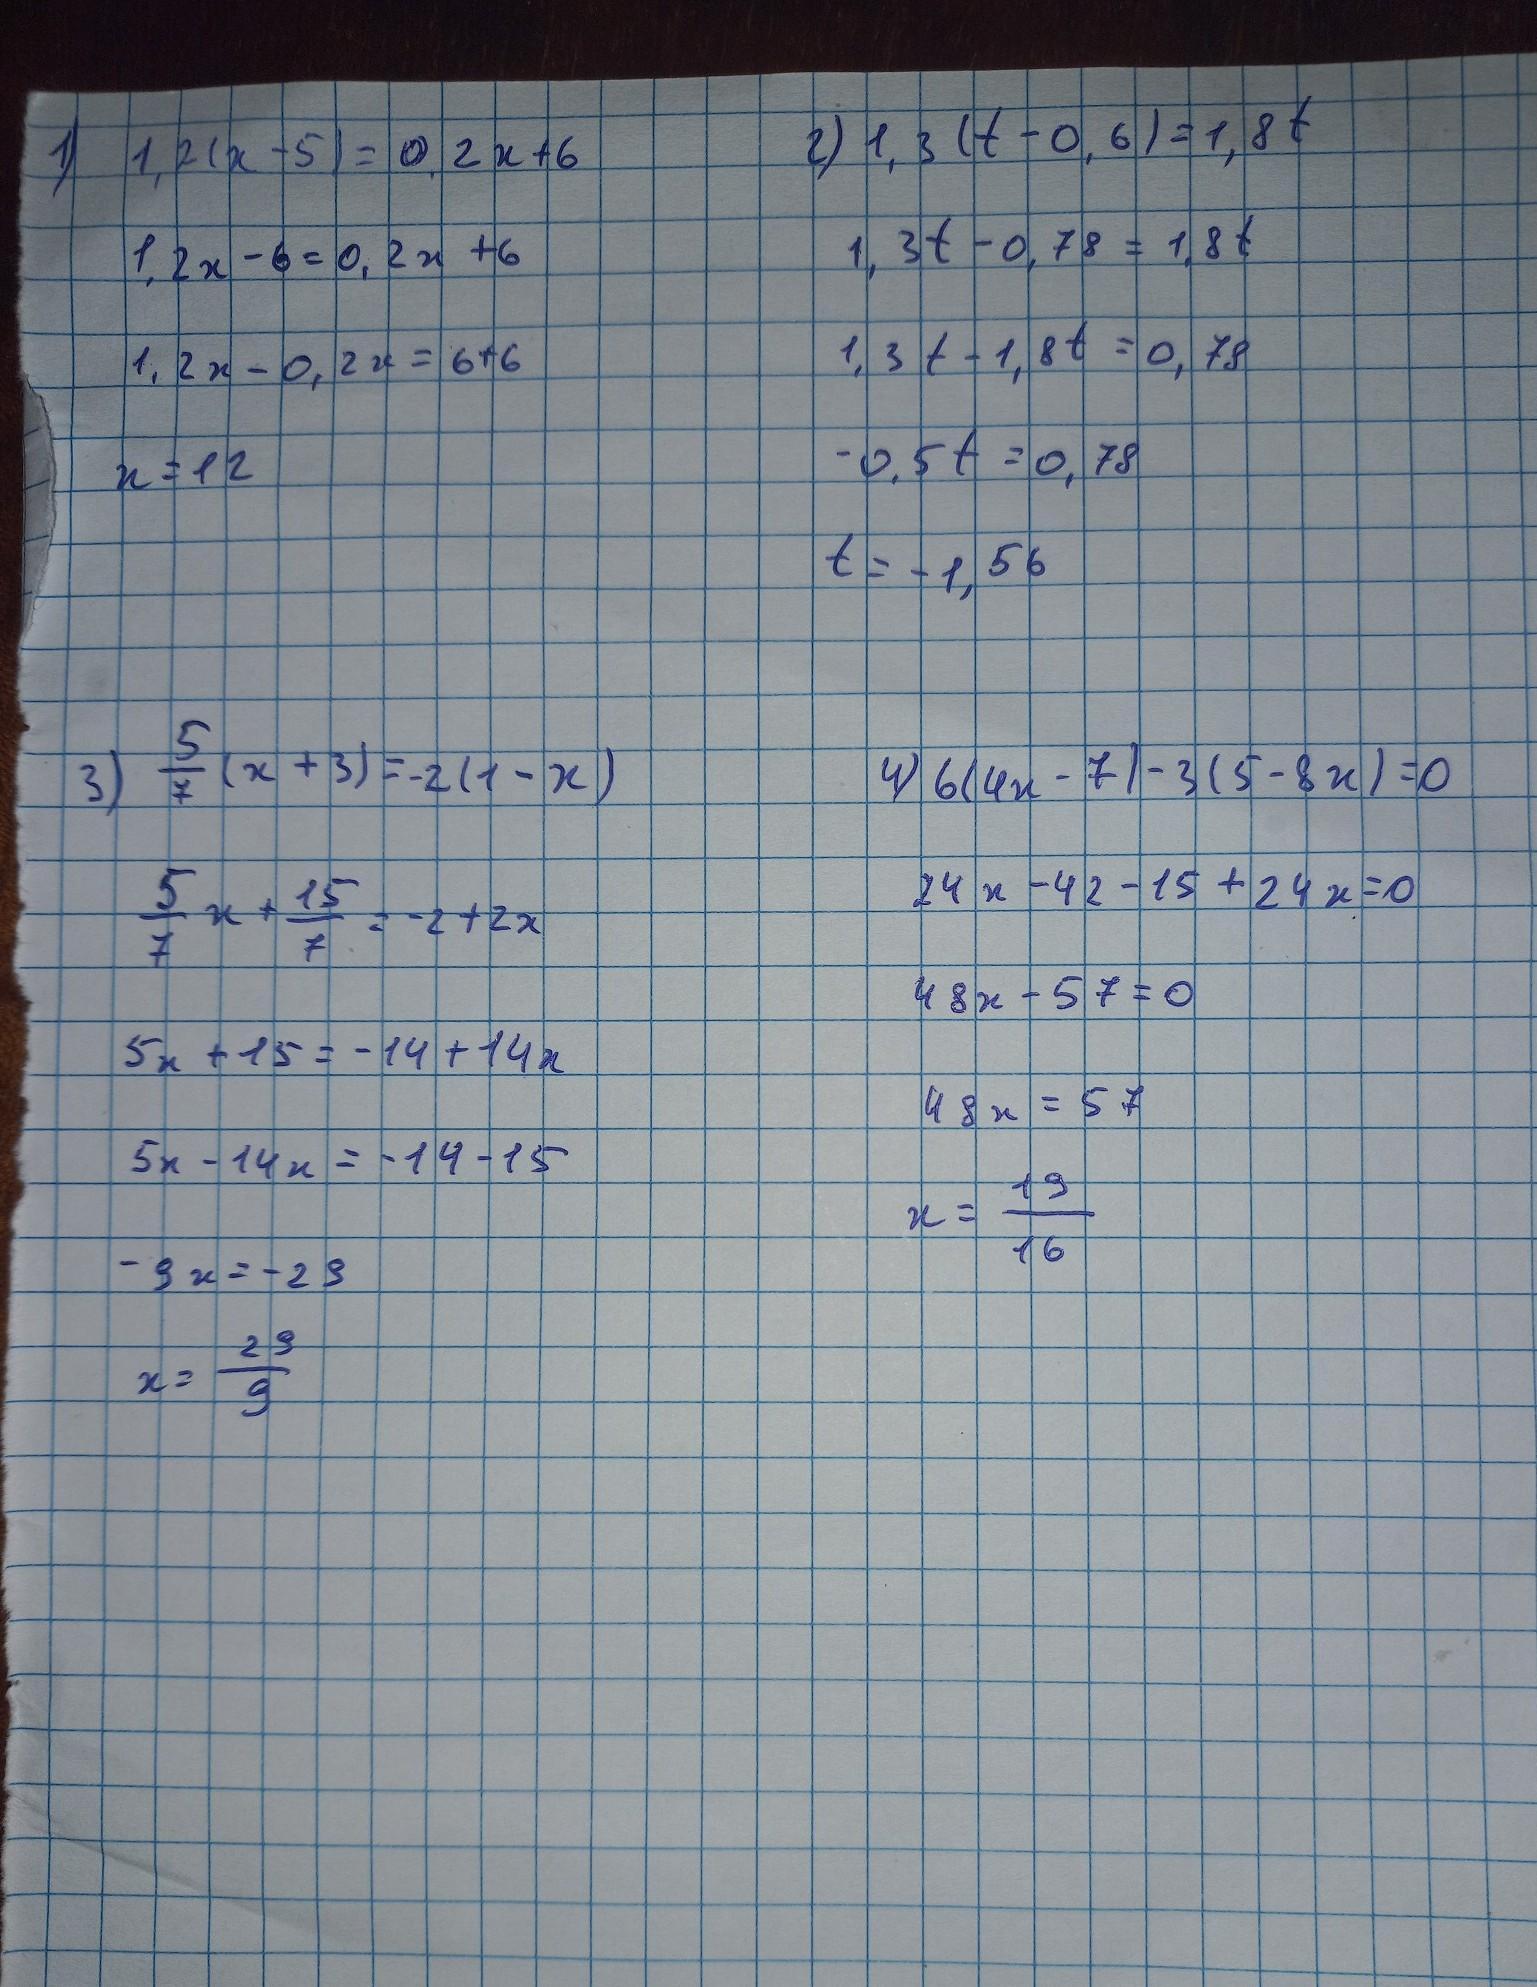 1) 1,2(x-5)=0,2x+6
1,2x-6=0,2x+6
1,2x-0,2x=6+6
x=12
2) 1,3(t-0,6)=1,8t
1,3t-0,78=1,8t
1,3t-1,8t=0,78
-0,5t=0,78
t=-1,56
3) 5/7(x+3)=-2(1-x)
5/7x+15/7=-2+2x
5x+15=-14+14x
5x-14x=-14-15
-9x=-29
x=29/9
4) 6(4x-7)-3(5-8x)=0
24x-42-15+24x=0
48x-57=0
48x=57
x=19/16